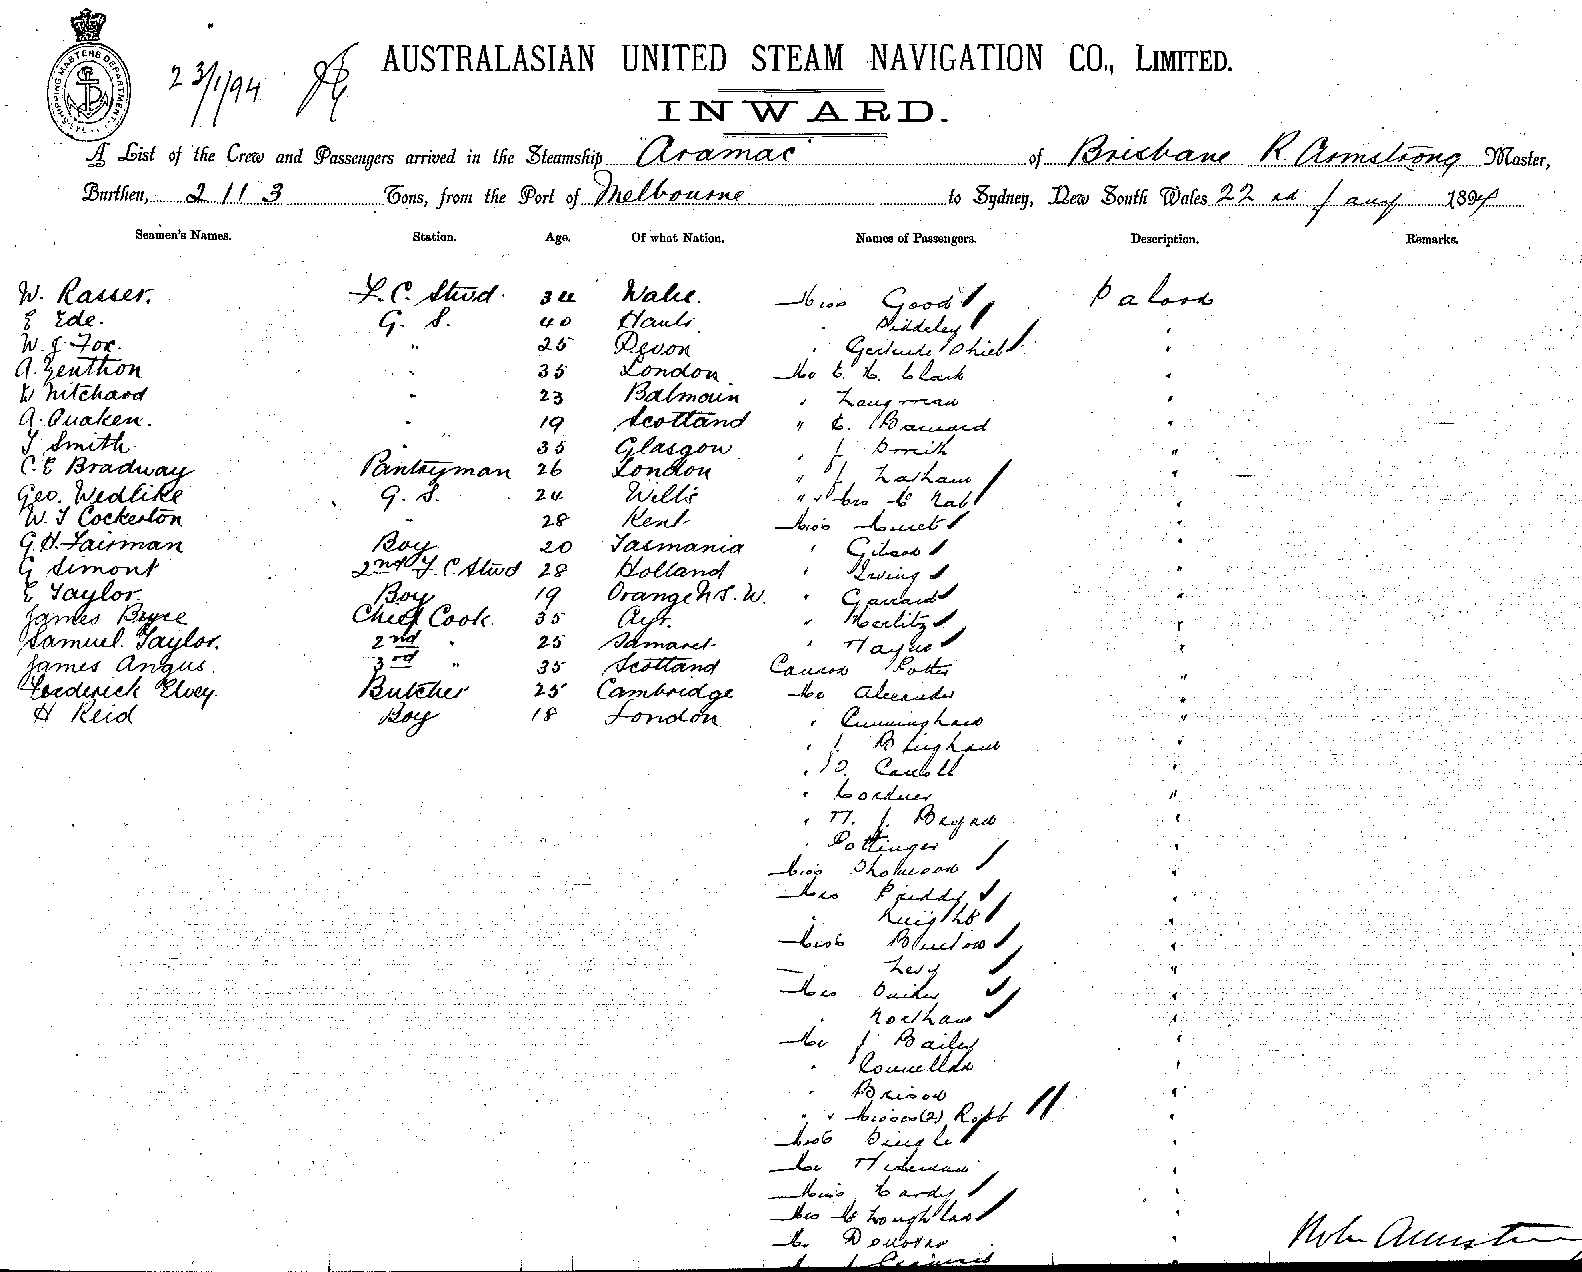 SHIPPING MASTERS DEPARTMENT
23/1/94
AUSTRALASIAN UNITED STEAM NAVIGATION CO., LIMITED.
INWARD.
A List of the Crew and Passengers arrived in the Steamship "Aramac" of Brisbane R Armstrong Master,
Burthen, 2113 Tons, from the Port of Melbourne to Sydney, New South Wales 22 1894
Seamen's Names. Station. Age. Of what Nation. Names of Passengers. Description. Remarks.
W. Rasser. F.C. Stwd. 34 Miss Good Saloon
E Ede. G. S. 40 Hants "
W. J. Fox. " 25 Devon " Gertrude "
A. Zenthon " 35 London Mr E. H. Clark "
W Pitchard " 23 Balmain " Langman "
A. Quaken. " 19 Scotland " E. Barnard "
T Smith " 35 Glasgow " J Smith "
C. E Bradway Pantryman 26 London " J Latham "
Geo. Wedlike G. S. 24 Wilts " " Mrs Mc Nab "
W. T Cockerton " 28 Kent Miss "
G. H. Fairman Boy 20 Tasmania " Gibson "
G Simont 2nd F. C. Stwd 28 Holland " Irving "
E Taylor Boy 19 Orange N. S. W. " Garrard "
James Bryce Chief Cook. 35 Ayr. "
Samuel Taylor. 2nd " 25 " Hayes "
James Angus. 3rd " 35 Scotland Canon Potter "
Frederick Elvey. Butcher 25 Cambridge Mr Alexander "
H Reid Boy 18 London " Cunningham "
" J. Bingham "
" D. Carroll "
" Cordner "
" H. J. Bryan "
" Pottinger "
Miss Thomson "
Mrs Priddy "
" Knight "
Miss Buxton "
Levy "
Mrs "
" Northam "
Mr J Bailey "
" Connellan "
" Brison "
" " Misses (2) Robb "
Miss Pingle "
Mr "
Miss Hardy "
Mrs McLoughlan "
Mr Donovan "
Armstrong